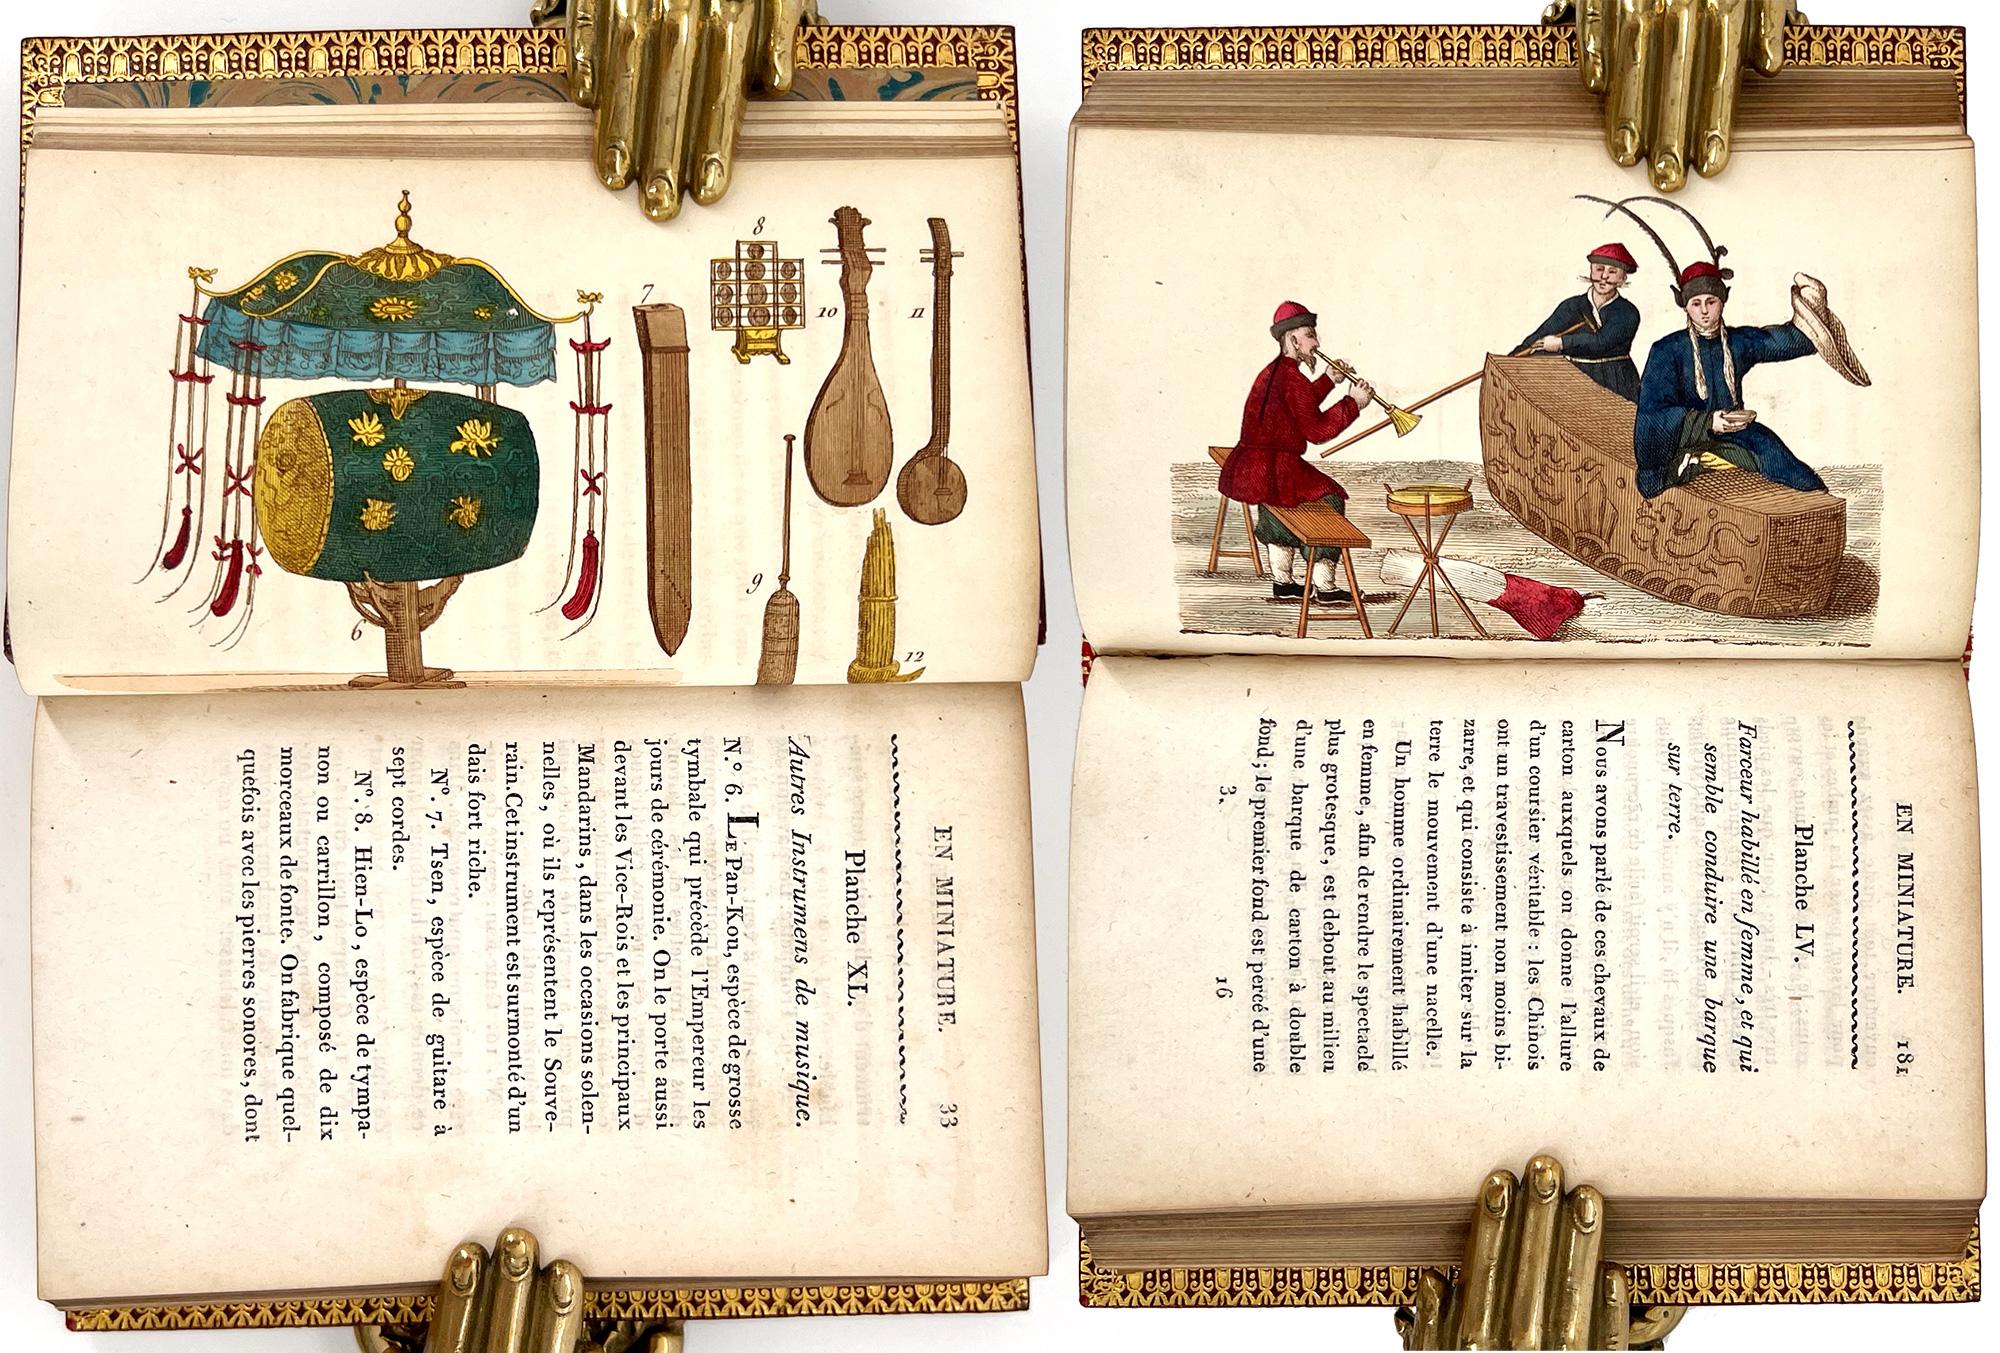 6
7
8
9
10
11
12
EN MINIATURE. 33
Planche XL.
Autres Instrumens de musique.
N.° 6. LE Pan-Kou, espèce de grosse
tymbale qui précède l'Empereur les
jours de cérémonie. On le porte aussi
devant les Vice-Rois et les principaux
Mandarins, dans les occasions solen-
nelles, où ils représentent le Souve-
rain. Cet instrument est surmonté d'un
dais fort riche.
N°. 7. Tsen, espèce de guitare à
sept cordes.
N°. 8. Hien-Lo, espèce de tympa-
non ou carrillon, composé de dix
morceaux de fonte. On fabrique quel-
quefois avec les pierres sonores, dont
EN MINIATURE. 181
Planche LV.
Farceur habillé en femme, et qui
semble conduire une barque
sur terre.
Nous avons parlé de ces chevaux de
carton auxquels on donne l'allure
d'un coursier véritable : les Chinois
ont un travestissement non moins bi-
zarre, et qui consiste à imiter sur la
terre le mouvement d'une nacelle.
Un homme ordinairement habillé
en femme, afin de rendre le spectacle
plus grotesque, est debout au milieu
d'une barque de carton à double
fond ; le premier fond est percé d'une
3. 16